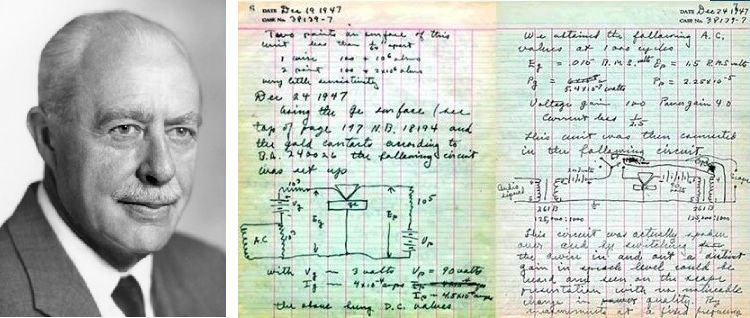 DATE Dec 19 1947
CASE No. 38139-7
Two points on surface of this
unit less than to apart
1 wire 100 + 10⁶ ohms
2 point 100 + 2×10⁶ ohms
very little sensitivity
Dec 24 1947
Using the Ge surface (see
top of page 197 N.B. 18194 and
the gold contacts according to
B.A. 240026 the following circuit
was set up
A.C
Vg
Eg
Ge
Ep
Vp
with Vg ~ 3 volts Vp = 90 volts
Ig ~ 4×10⁻⁴ amps
Ip = 4.5×10⁻⁴ amps
the above being D.C. values
DATE Dec 24 1947
CASE No. 38139-7
We obtained the following A.C.
values at 1000 cycles
Eg = .015 R.M.S. volts Ep = 1.5 R.M.S. volts
Pg = 5.4×10⁻⁷ watts Pp = 2.25×10⁻⁵
Voltage gain 100 Power gain 40
Current loss 1/2.5
This unit was then connected
in the following circuit
Audio signal
Scope
261B 261B
125,000:1000 125,000:1000
This circuit was actually spoken
over and by switching
the device in and out a distinct
gain in speech level could be
heard and seen on the scope
presentation with no noticeable
change in quality. By
measurements at a fixed frequency